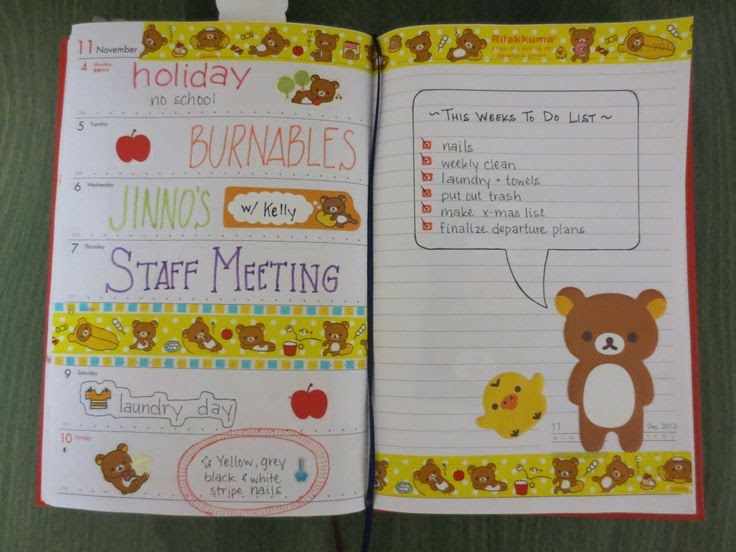 11 November
4 Monday
holiday
no school
5 Tuesday
BURNABLES
6 Wednesday
JINNO'S
w/ Kelly
7 Thursday
STAFF MEETING
9 Saturday
laundry day
10 Sunday
Yellow, grey
black & white
stripe nails
Rilakkuma
~THIS WEEKS TO DO LIST~
nails
weekly clean
laundry + towels
put out trash
make x-mas list
finalize departure plans
11
Dec. 2013